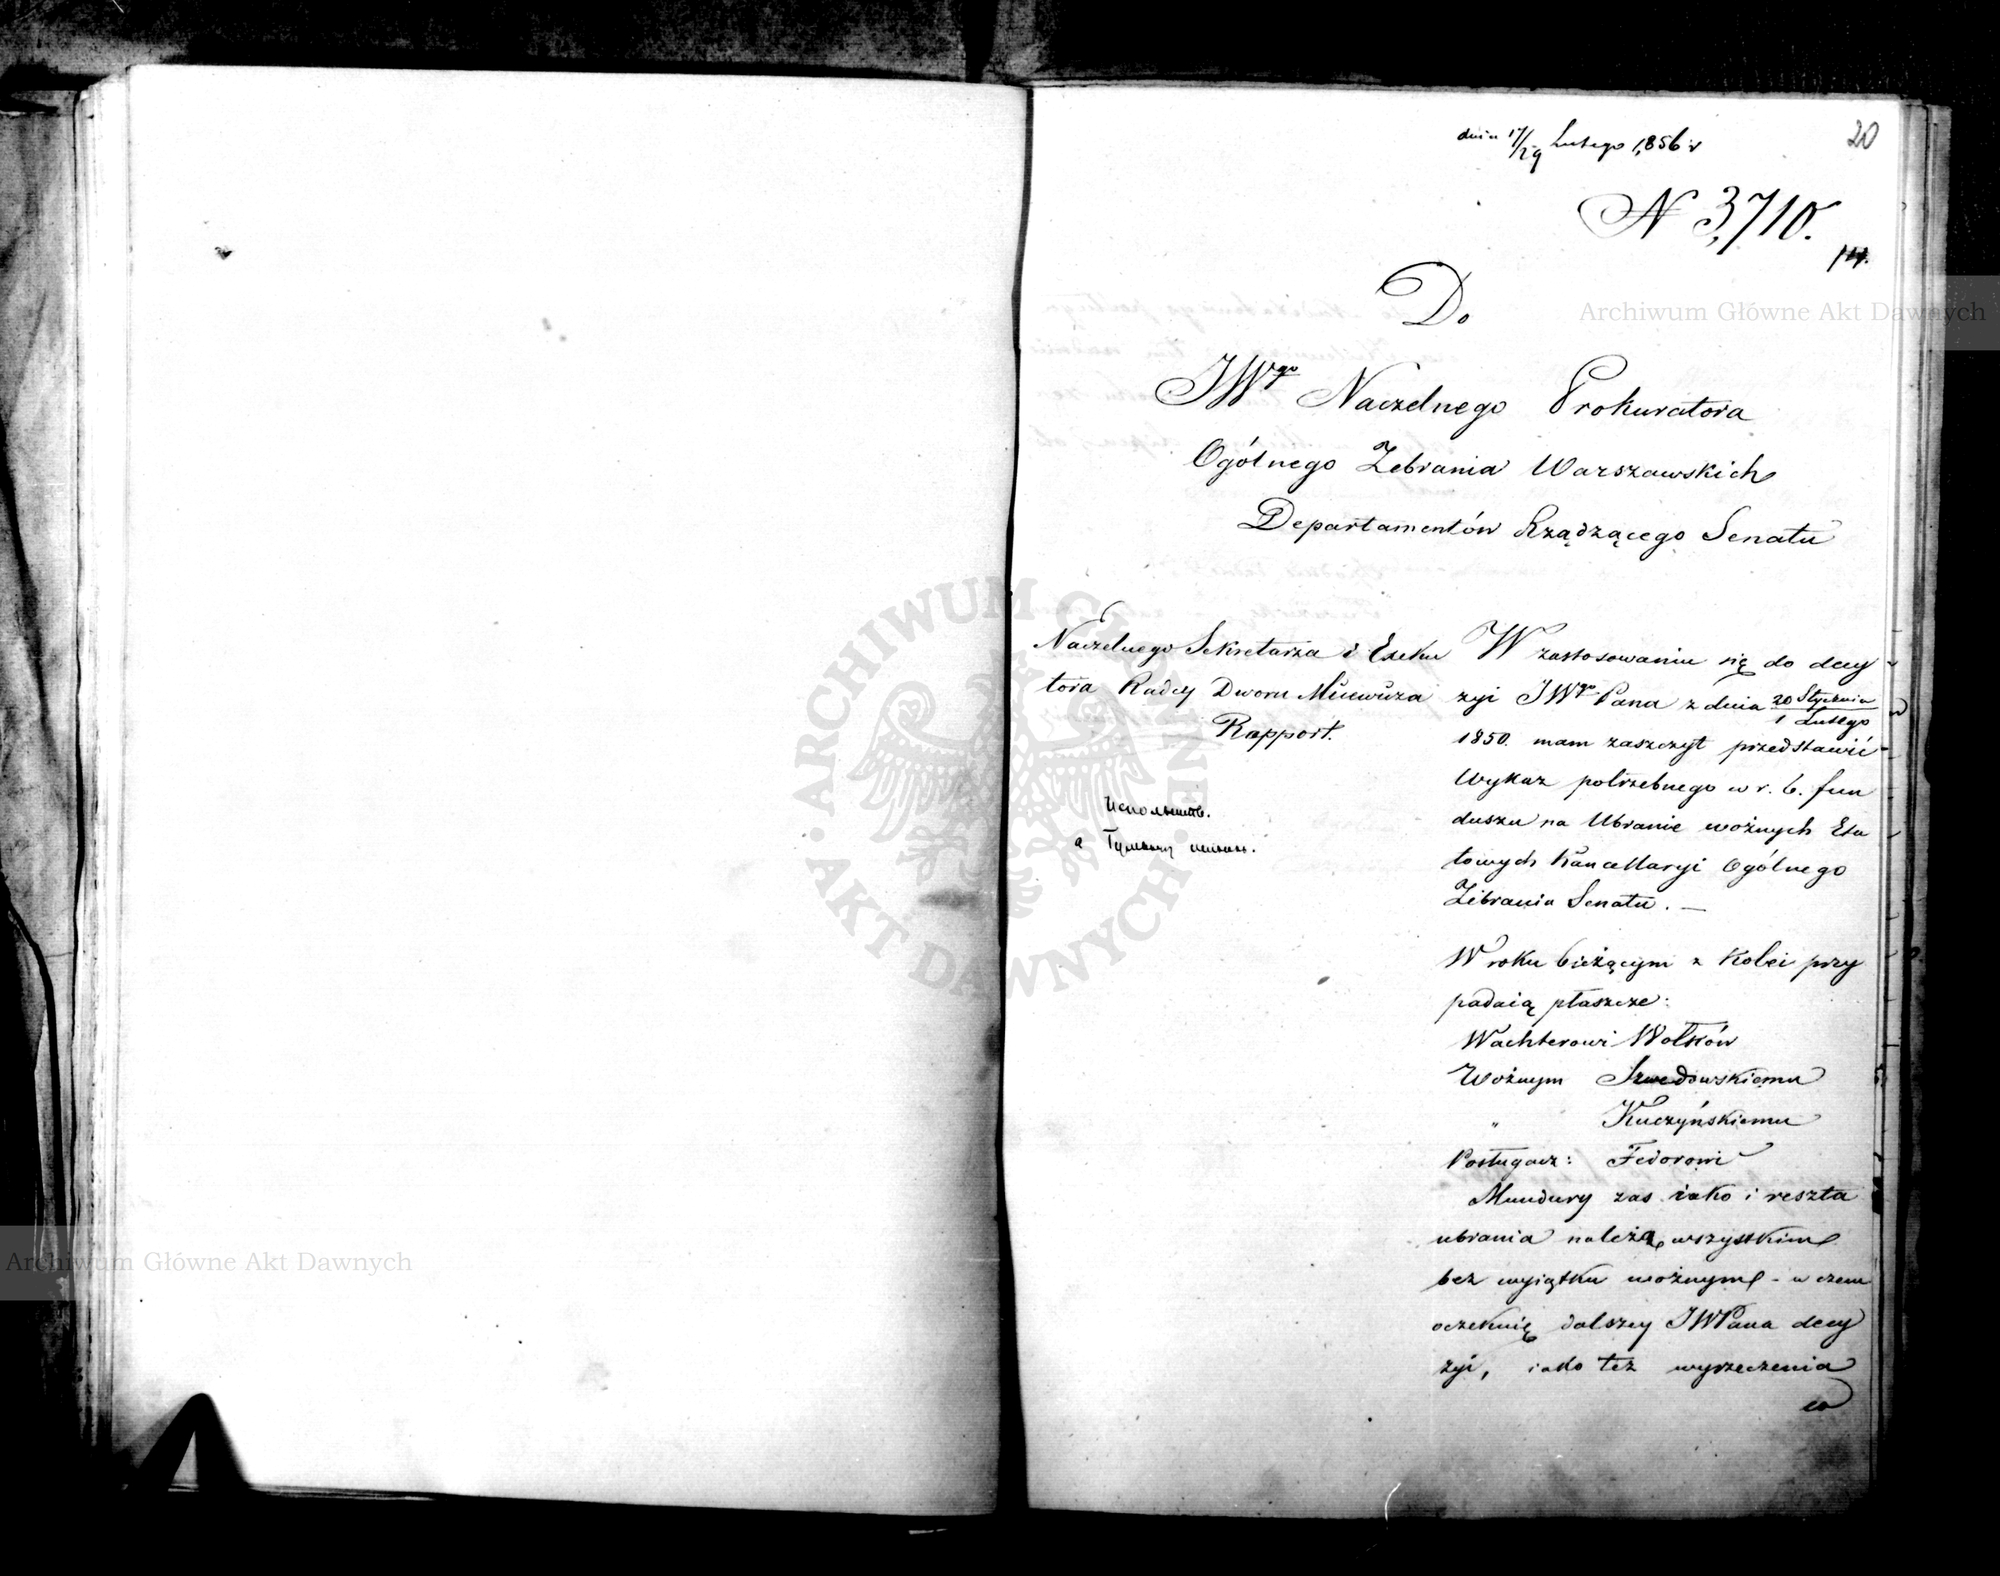 20
dnia 17/29 Lutego 1856 r
N 3,710.
14.
Do
JWgo Naczelnego Prokuratora
Ogólnego Zebrania Warszawskich
Departamentów Rządzącego Senatu
Naczelnego Sekretarza i Exeku
tora Radcy Dworu
Rapport.
W zastosowaniu się do decy
zyi JWgo Pana z dnia 20 Stycznia / 1 Lutego
1850. mam zaszczyt przedstawić
Wykaz potrzebnego w r. b. fun
duszu na Ubranie woźnych Eta
towych Kancellaryi Ogólnego
Zebrania Senatu. —
W roku bieżącym z Kolei przy
padaią płaszcze:
Wachterowi Wołków
Woźnym Szwedowskiemu
" Kuczyńskiemu
Posługacz: Fedorowi
Mundury zas iako i reszta
ubrania należą wszystkim
bez wyiątku woźnym - w czem
oczekuię dalszey JWPana decy
zyi, iako też wyrzeczenia
w
Archiwum Główne Akt Dawnych
ARCHIWUM GŁÓWNE AKT DAWNYCH
Archiwum Główne Akt Dawnych